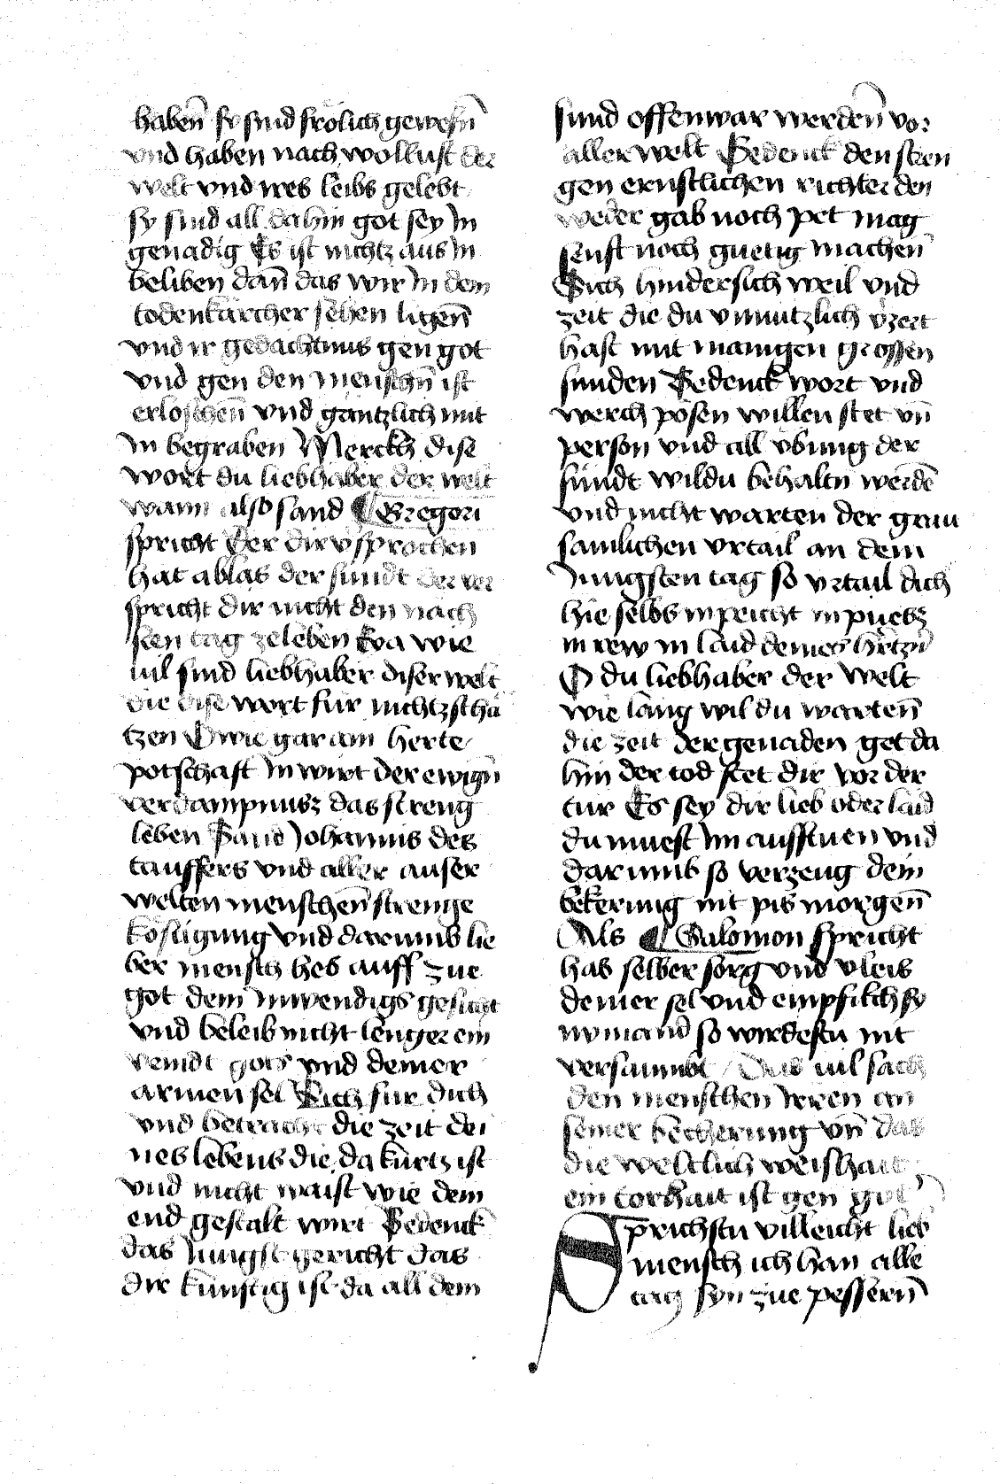 haben̄ sy sind frölich gewesn̄
vnd haben nach wollust der
welt vnd ires leibs gelebt
sy sind all dahin got sey In
genadig Es ist nichtz aus In
beliben dan̄ das wir In dem
todenkärcher sehen ligen̄
vnd ir gedachtnus gen got
vnd gen den menschn̄ ist
erloschen̄ vnd gäntzlich mit
In begraben Merckh dise
wort du liebhaber der welt
wann also sand Gregori
spricht Der dir v̓sprochen
hat ablas der sundt der ver
spricht dir nicht den nach
sten tag zeleben Eya wie
uil sind liebhaber diser welt
die dise wort für nichtz schä
tzen O wie gar ain herte
potschaft In wirt der ewign̄
verdampnusz das streng
leben Sand Johanns des
tauffers vnd aller auser
welten menschen̄ strenge
kostigung vnd darumb lie
ber mensch heb auff zue
got dein Inwendigs gesicht
vnd beleib nicht lenger ein
veindt gots vnd deiner
armen sel Sich für dich
vnd betracht die zeit dei
nes lebens die da kurtz ist
vnd nicht waist wie dein
end gestalt wirt Bedenck
das Jungst gericht das
dir künftig ist da all dein
sund offenwar werden̄ vor
aller welt Bedenck den stren
gen ernstlichen richter den
weder gab noch pet mag
senft noch guetig machen̄
Sich hindersich weil vnd
zeit die du vnnutzlich v̓zert
hast mit manigen grossen
sunden Bedenck wort vnd
werch pösen willen stet vn̄
person vnd all vbung der
sündt wildu behaltn werdē
vnd nicht warten der grau
samlichen vrtail an dem
Jungsten tag so vrtail dich
hie selbs in peicht in puesz
in rew in laid deines hertzn̄
O du liebhaber der welt
wie lang wil du warten̄
die zeit der genaden get da
hin der tod stet dir vor der
tür Es sey dir lieb oder laid
du muest Im aufftuen vnd
darumb so verzeug dein
bekerung nit pis morgen̄
Als Salomon spricht
hab selber sorg vnd vleis
deiner sel vnd empfilch sy
nymand so wirdestu nit
versaumbt Das uil sach
den menschen Irren an
seiner bercherung vn̄ das
die weltlich weishait
ein torhait ist gen got
Sprichstu villeicht lieb
mensch ich han alle
tag syn zue pessern̄